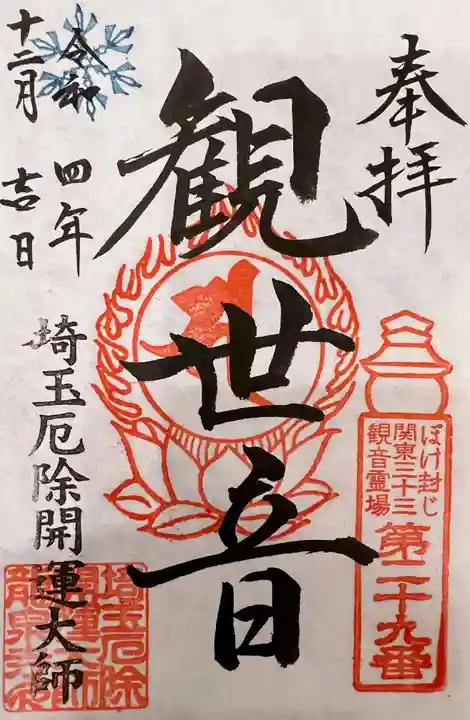 奉拝
ぼけ封じ
関東三十三
観音霊場
第二十九番
観世音
令和四年
十二月吉日
埼玉厄除開運大師
埼玉厄除
開運大師
龍泉寺